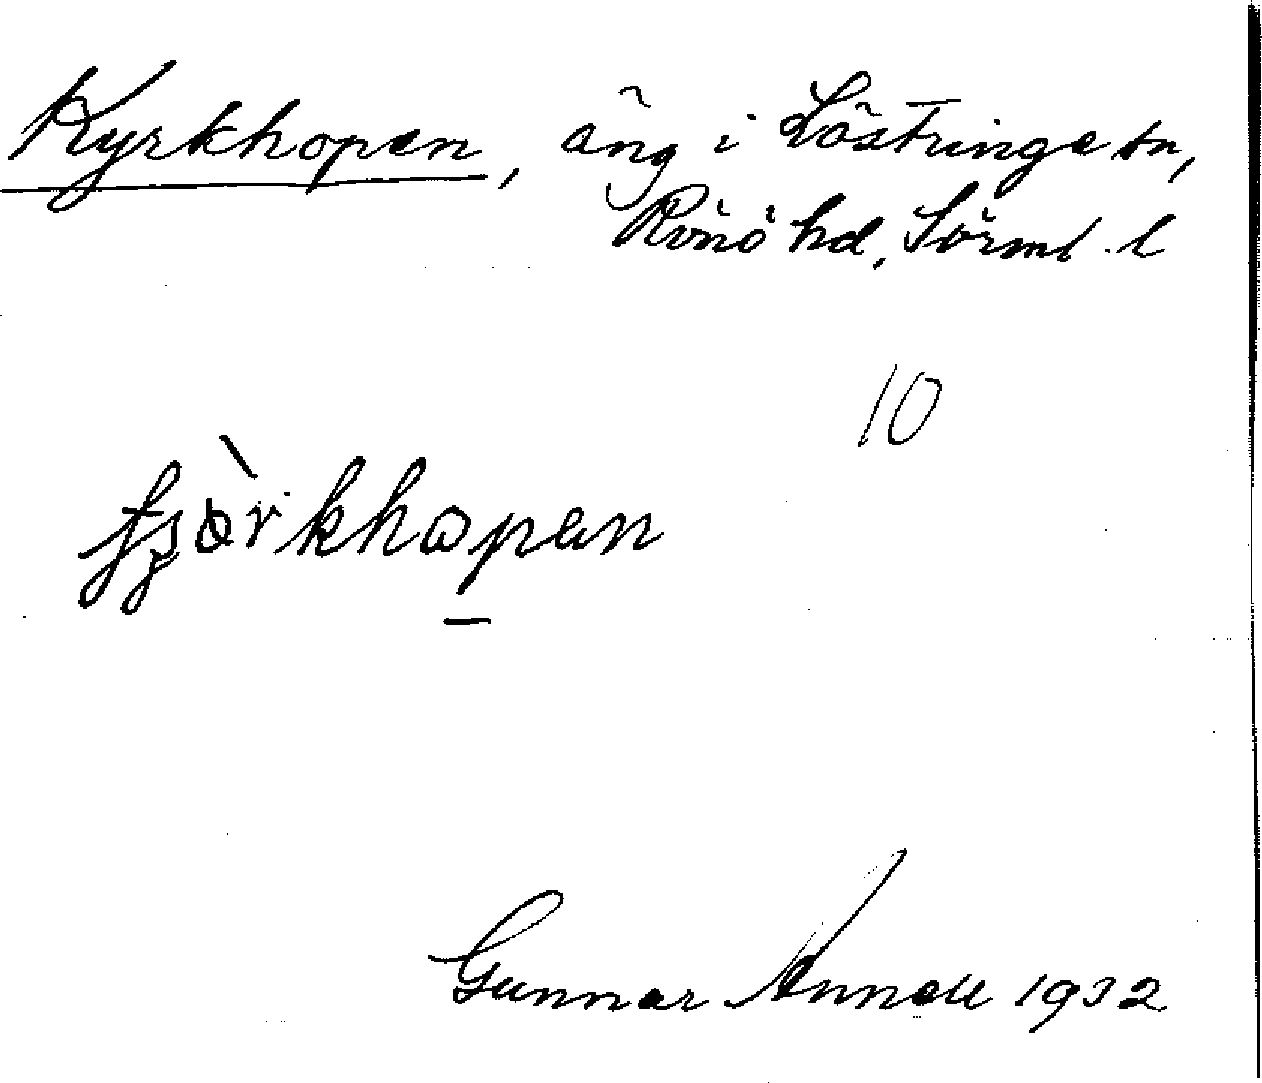 Kyrkhopen, äng i Lästringe sn,
Rönö hd, Sörml. l
10
Gunnar Annell 1932